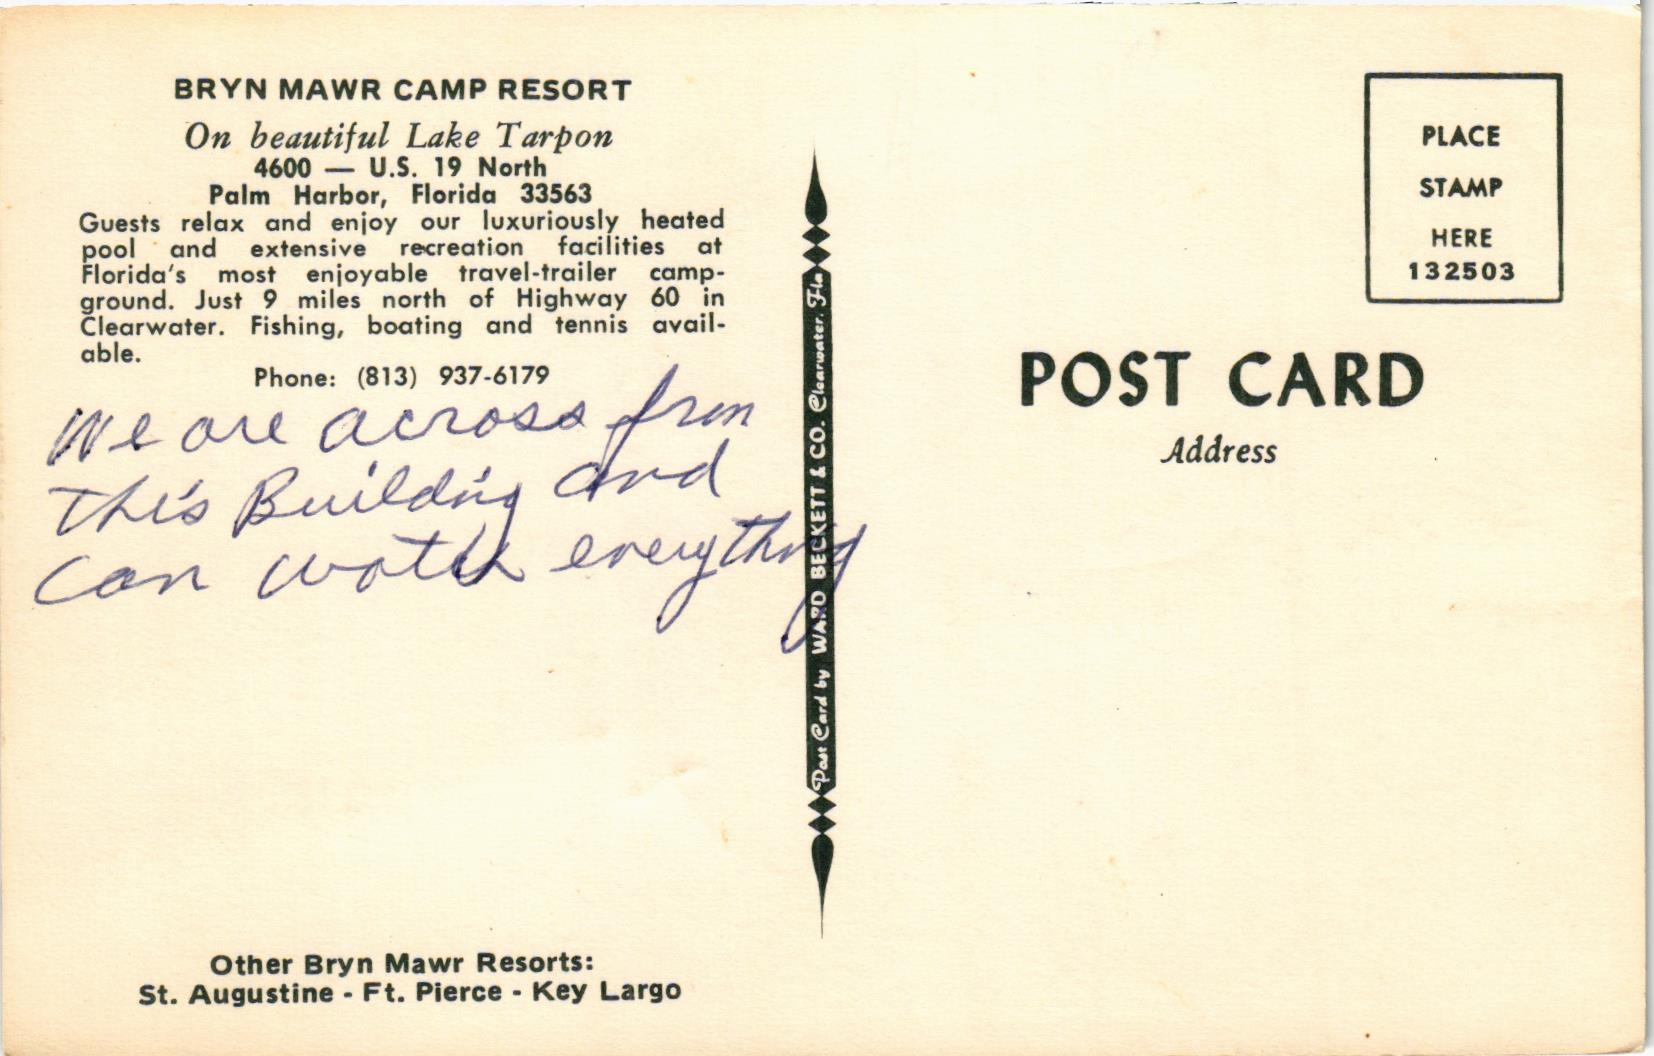 BRYN MAWR CAMP RESORT
On beautiful Lake Tarpon
4600 — U.S. 19 North
Palm Harbor, Florida 33563
Guests relax and enjoy our luxuriously heated
pool and extensive recreation facilities at
Florida's most enjoyable travel-trailer camp-
ground. Just 9 miles north of Highway 60 in
Clearwater. Fishing, boating and tennis avail-
able.
Phone: (813) 937-6179
We are across from
this Building and
can watch everything
Other Bryn Mawr Resorts:
St. Augustine - Ft. Pierce - Key Largo
Post Card by WARD BECKETT & CO. Clearwater, Fla
PLACE
STAMP
HERE
132503
POST CARD
Address